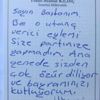 Sayın Başkanım.
Ben o utanç
verici eylemi
Size partinize
yapmadım. Ama
yenede sizden
çok özür diliyor
ve bayramınızı
kutluyorum